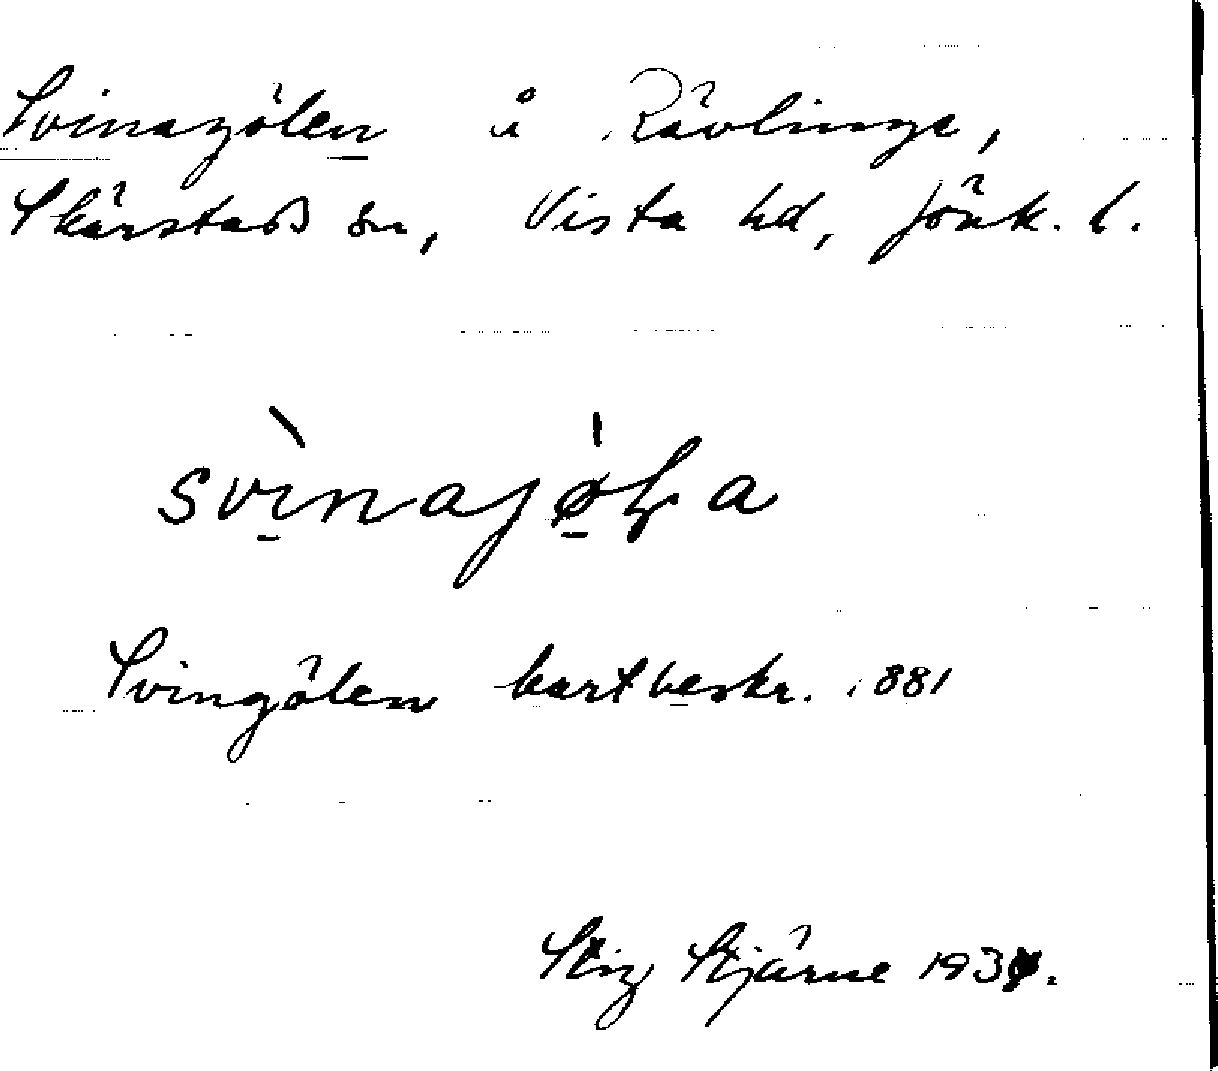 Svinagölen å Rävlinge,
Skärstads sn, Vista hd, Jönk. l.
svìnajø̍ɫa
Svingölen kartbeskr. 1881
Stig Stjärne